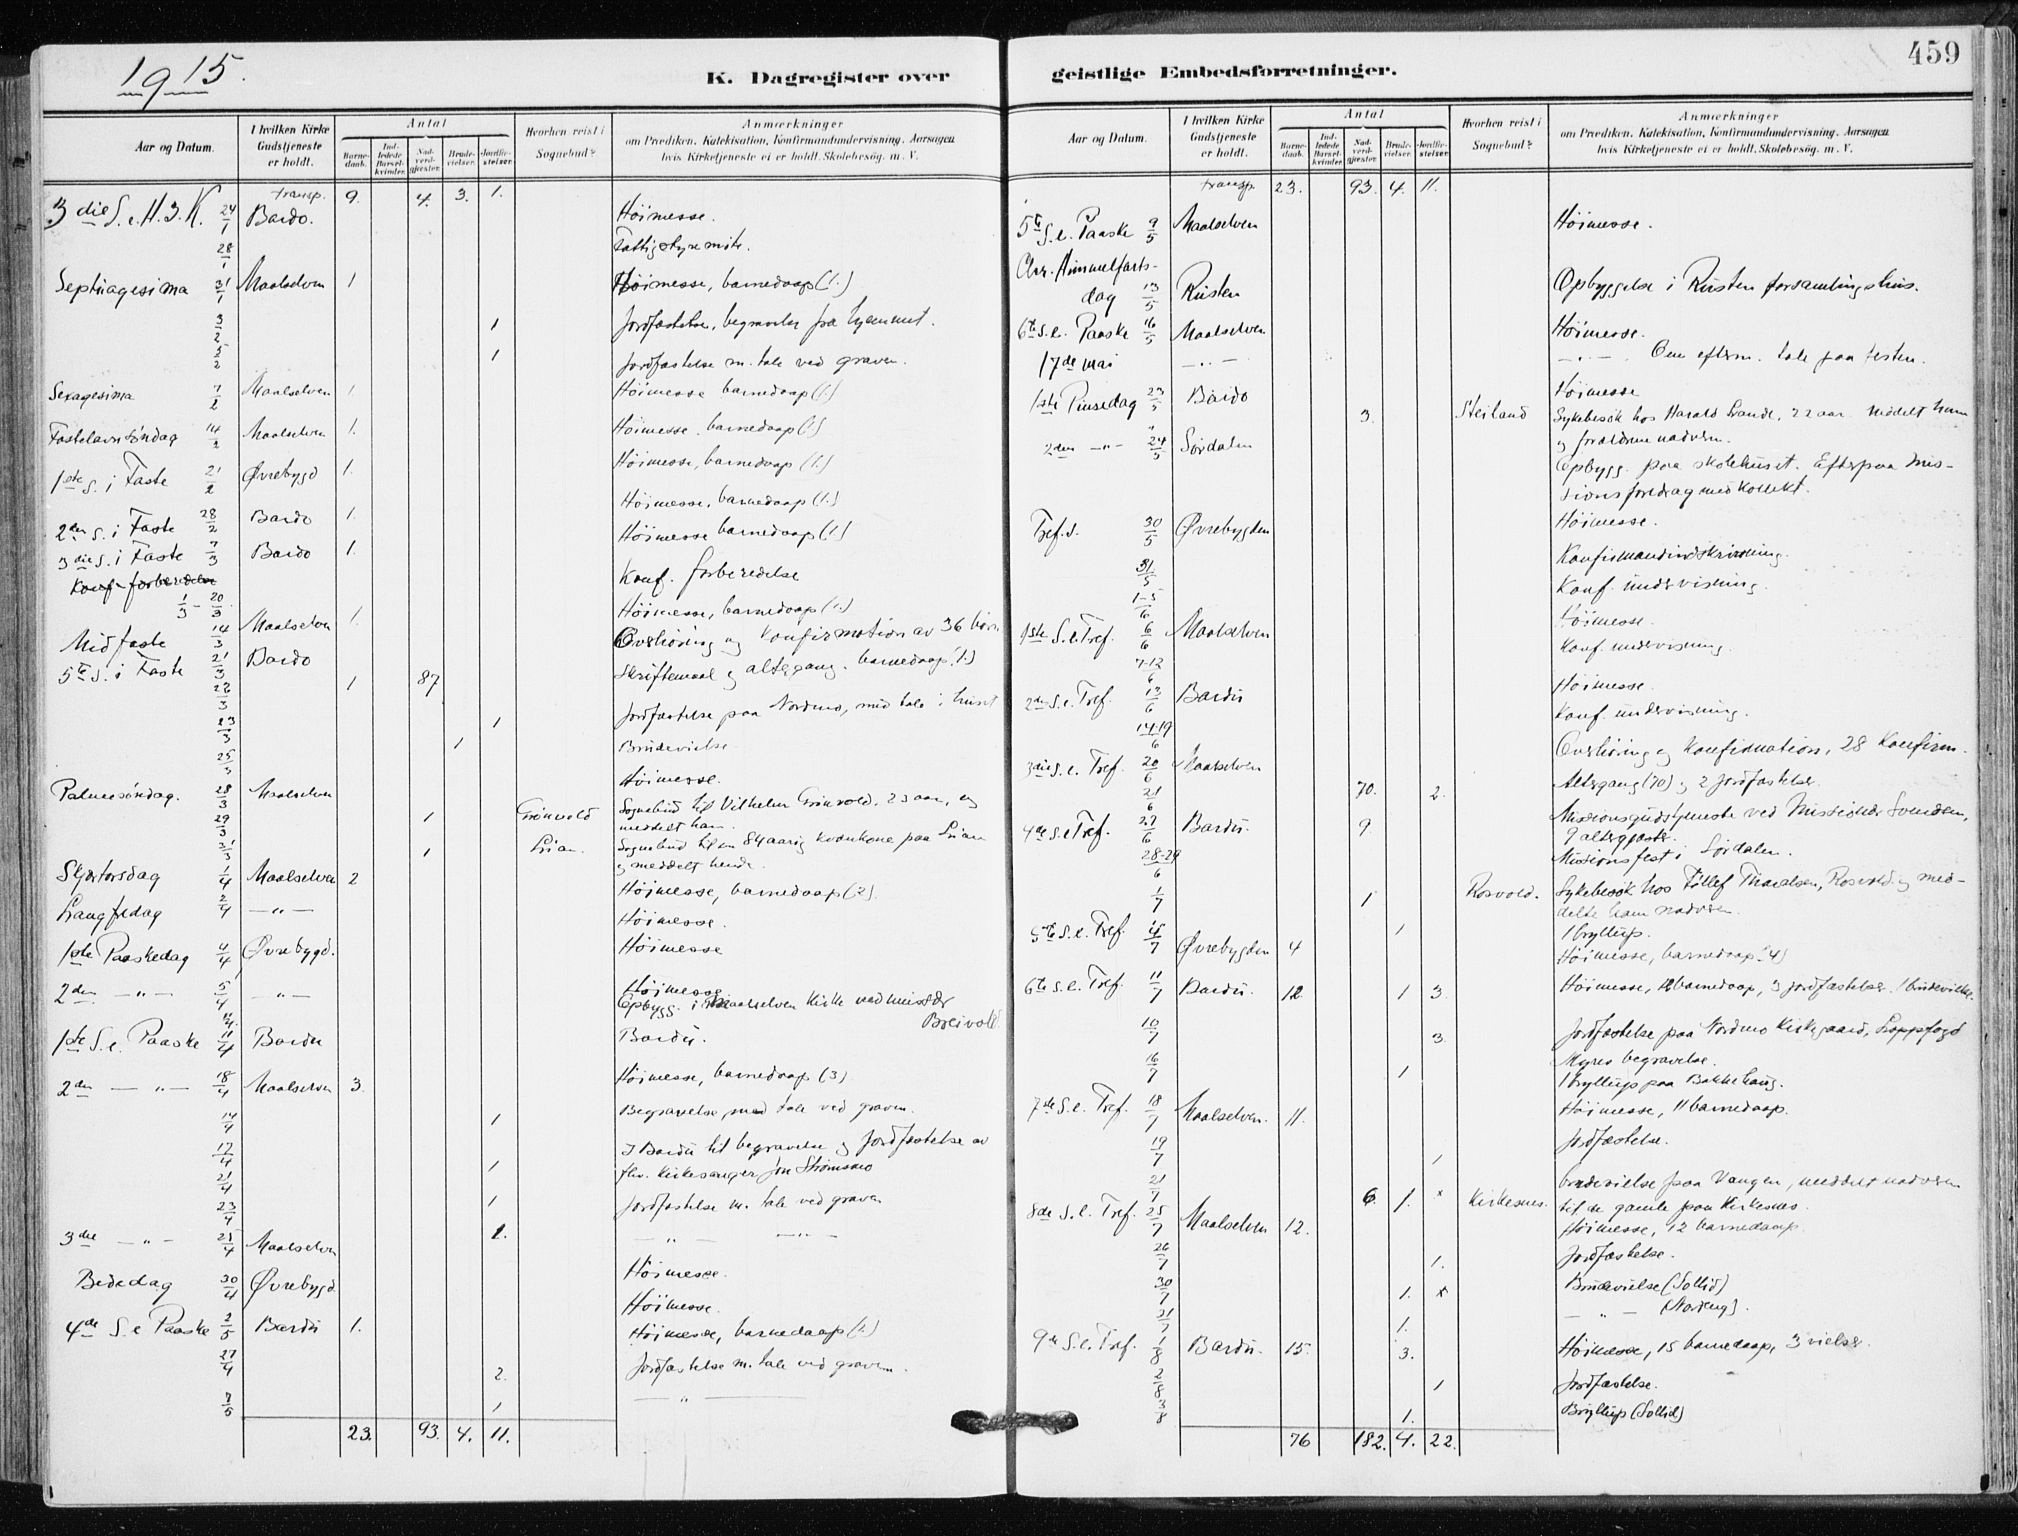 459
1915.
K. Dagregister over
geistlige Embedsforretninger.
Aar og Datum.
I hvilken Kirke Gudstjeneste er holdt.
Antal
Barnedaab.
Indledede Barselkvinder.
Nadverdgjæster.
Brudevielser.
Jordfæstelser.
Hvorhen reist i Sognebud?
Anmærkninger
om Prædiken, Katekisation, Konfirmandundervisning, Aarsagen
hvis Kirketjeneste ei er holdt, Skolebesøg, m. V.
transp. 9. 4. 3. 1.
3die S. e. H. 3. K. 24/1 Bardo. Höimesse.
28/1 Fattigstyremöte.
Septuagesima 31/1 Maalselven 1 Höimesse, barnedaap (1.)
3/2 1 Jordfæstelse, begravelse fra hjemmet.
5/2 1 Jordfæstelse m. tale ved graven.
Sexagesima 7/2 Maalselven 1. Höimesse barnedaap (1.)
Fastelavnssöndag 14/2 Maalselven 1. Höimesse. barnedaap (1.)
1ste S. i Faste 21/2 Øvrebygd 1. Höimesse, barnedaap (1.)
2den S. i Faste 28/2 Bardo 1. Höimesse, barnedaap (1.)
3die S. i Faste 7/3 Bardo 1. Höimesse barnedaap (1.)
Konf. forberedelse
1/3 - 20/3 Konf. forberedelse
Midfaste 14/3 Maalselven 1. Höimesse, barnedaap (1.)
5te S. i Faste 21/3 Bardo Overhöring og konfirmation av 36 börn
1 87 Skriftemaal og altergang. barnedaap (1.)
23/3 1 Jordfæstelse paa Nordmo, med tale i huset
25/3 1 Brudevielse.
Palmesöndag. 28/3 Maalselven Höimesse.
29/3 1 Grönvold Sognebud til Vilhelm Grönvold, 23 aar, og
meddelt ham.
31/3 1 Lian. Sognebud til en 84 aarig kvænkone paa Lian
og meddelt hende.
Skjærtorsdag 1/4 Maalselven 2 Höimesse, barnedaap (2).
Langfredag 2/4 —„— Höimesse.
1ste Paaskedag 4/4 Øvrebygd. Höimesse
2den —„— 5/4 —„— Höimesse
Opbygg. i Maalselven Kirke ved missær
Breivold.
1ste S. e. Paaske 11/4 Bardu Bardu.
2den —„— 18/4 Maalselven 3. Höimesse, barnedaap (3)
14/4 1 Begravelse, med tale ved graven.
17/4 I Bardu til begravelse og Jordfæstelse av
21/4 1 fhv. Kirkesanger Jon Strömsmo
23/4 1 Jordfæstelse m. tale ved graven
3die —„— 25/4 Maalselven 1. —„— —„—
Bededag 30/4 Øvrebygd. Höimesse.
Höimesse.
4de S. e Paaske 2/5 Bardu 1. Höimesse, barnedaap (1.)
27/4 2. Jordfæstelse m. tale ved graven.
7/5 1 —„—
23. 93. 4. 11.
Aar og Datum.
I hvilken Kirke Gudstjeneste er holdt.
Antal
Barnedaab.
Indledede Barselkvinder.
Nadverdgjæster.
Brudevielser.
Jordfæstelser.
Hvorhen reist i Sognebud?
Anmærkninger
om Prædiken, Katekisation, Konfirmandundervisning, Aarsagen
hvis Kirketjeneste ei er holdt, Skolebesög, m. V.
transp. 23. 93. 4. 11.
5te S. e. Paaske 9/5 Maalselven Höimesse.
Chr. Himmelfarts-
dag 13/5 Rusten Opbyggelse i Rusten forsamlingshus.
6te S. e. Paaske 16/5 Maalselven Höimesse.
17de mai —„— —„—. Om efterm. tale paa festen.
1ste Pinsedag 23/5 Bardo Höimesse
3. Steiland Sykebesök hos Harald Strande, 22 aar. meddelt ham
og forældrene nadveren.
2den —„— 24/5 Sördalen Opbygg. paa skolehuset. Efterpaa mis-
sionsforedrag med kollekt.
Tref. s. 30/5 Øvrebygden Höimesse.
31/5 Konfirmandindskrivning.
1-5/6 Konf. undervisning.
1ste S. e Tref. 6/6 Maalselven Höimesse.
7-12/6 Konf. undervisning.
2den S. e. Tref. 13/6 Bardu Höimesse.
14-19/6 Konf. undervisning.
3die S. e. Tref. 20/6 Maalselven Overhöring og Konfirmation, 28 Konfirm.
21/6 70. 2. Altergang (70) og 2 Jordfæstelser
4de S. e Tref. 27/6 Bardu. 9 Missionsgudstjeneste ved Missionær Svendsen,
9 altergjæster.
28-29/6 Missionsfest i Sördalen.
1/7 1 Rosvold. Sykebesök hos Tollef Thoralsen, Rosvold og med-
delte ham nadveren.
1 1 bryllup.
5te S. e. Tref. 4/7 Øvrebygden 4 Höimesse, barnedaap (4)
6te S. e. Tref. 11/7 Bardu. 12. 1 3. Höimesse, 12 barnedaap, 3 jordfæstelser. 1 brudevielse.
10/7 3. Jordfæstelse paa Nordmo Kirkegaard, Lappfogd
Myres begravelse.
16/7 1 1 bryllup paa Bakkehaug.
7de S. e. Tref. 18/7 Maalselven. 11. Höimesse, 11 barnedaap.
19/7 1 Jordfæstelse.
21/7 6 1. × Kirkesnes. brudevielse paa Vangen, meddelt nadveren
til de gamle paa Kirkesnes.
8de S. e. Tref. 25/7 Maalselven 12. Höimesse, 12 barnedaap.
26/7 1. Jordfæstelse.
30/7 1. × Brudevielse (Sollid)
21/7 1. —„— (Nordeng).
9de S. e. Tref. 1/8 Bardu. 15. 3. Höimesse, 15 barnedaap, 3 vielser.
2/8 1 Jordfæstelse.
3/8 1. Bryllup (Sollid)
76 182. 4. 22.